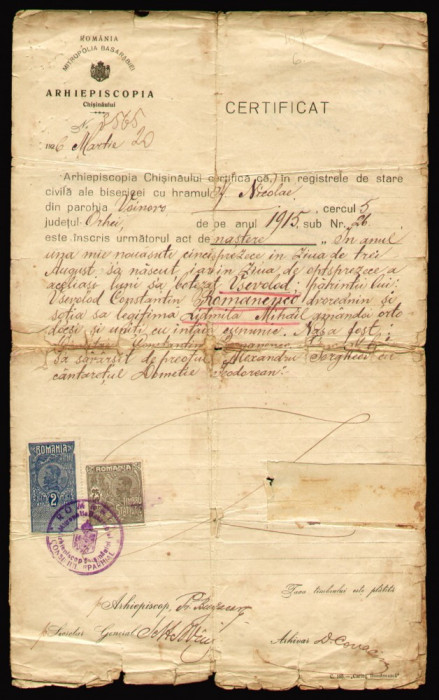 ROMÂNIA
MITROPOLIA BASARABIEI
ARHIEPISCOPIA
Chişinăului
N. 3565
6 Martie 20
CERTIFICAT
Arhiepiscopia Chişinăului certifică că, în registrele de stare
civilă ale bisericei cu hramul Sf Nicolae
din parohia cercul 5
judeţul Orhei, de pe anul 1915, sub Nr. 26
este înscris următorul act de naştere „In anul
una mie nouăsute cincisprezece in ziua de trei
August, sa născut, iar in ziua de optsprezece a
aceliași luni sa botezat Vsevolod, părintii lui:
Vsevolod Constantin Romanenco dvoreanin și
soția sa legitima Ludmila Mihail amandoi orto
decși și uniți cu intaia cununie. Nasa fost:
Constantin Romanenco
Sa săvârșit de preotul Alexandru Gheorghiev cu
cântarețul Dimetie Teodorean".
ROMANIA
2
ROMANIA
25
Taxa timbrului este plătită
p. Arhiepiscop,
p. Secretar General
Arhivar